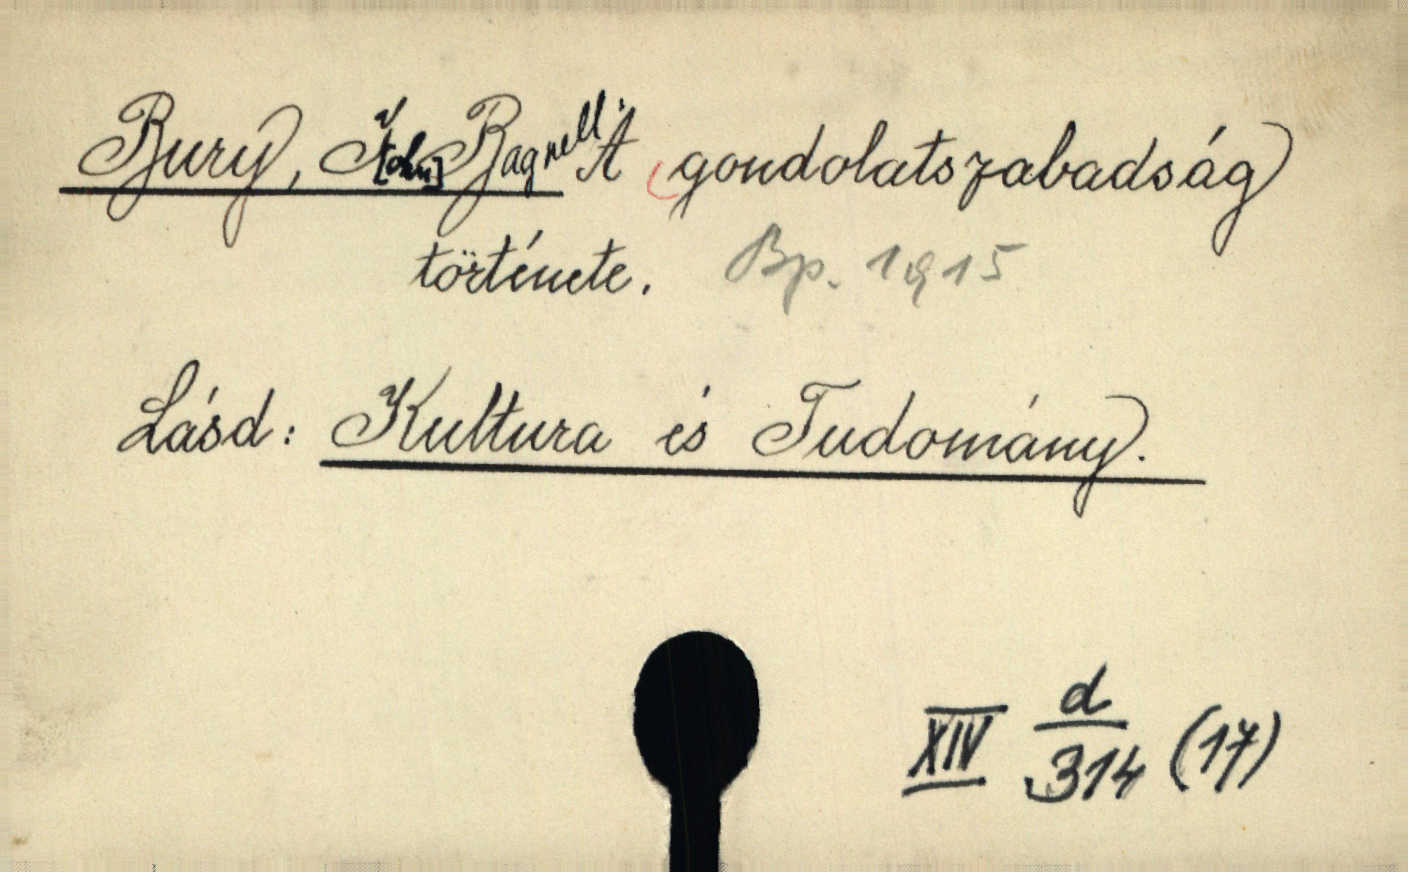 Bury, J[ohn] Bagnell: A gondolatszabadság
története. Bp. 1915
Lásd: Kultura és Tudomány.
XIV d/314 (17)